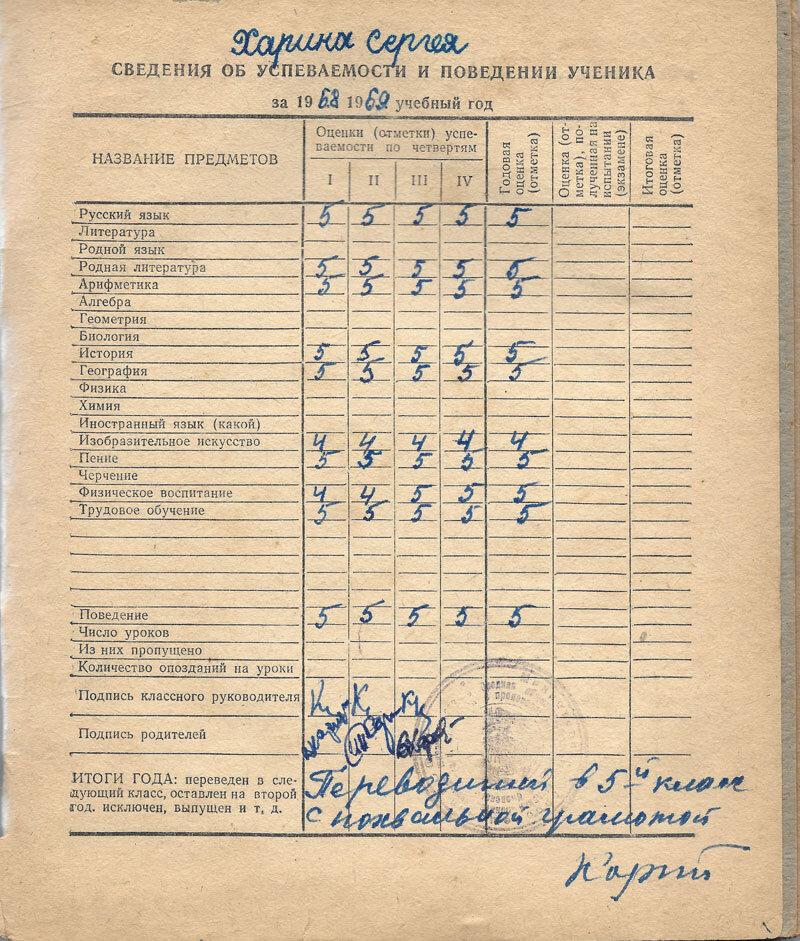 Харина Сергея
СВЕДЕНИЯ ОБ УСПЕВАЕМОСТИ И ПОВЕДЕНИИ УЧЕНИКА
за 1968 1969 учебный год
НАЗВАНИЕ ПРЕДМЕТОВ
Оценки (отметки) успе-
ваемости по четвертям
I II III IV
Годовая
оценка
(отметка)
Оценка (от-
метка), по-
лученная на
испытании
(экзамене)
Итоговая
оценка
(отметка)
Русский язык 5 5 5 5 5
Литература
Родной язык
Родная литература 5 5 5 5 5
Арифметика 5 5 5 5 5
Алгебра
Геометрия
Биология
История 5 5 5 5 5
География 5 5 5 5 5
Физика
Химия
Иностранный язык (какой)
Изобразительное искусство 4 4 4 4 4
Пение 5 5 5 5 5
Черчение
Физическое воспитание 4 4 5 5 5
Трудовое обучение 5 5 5 5 5
Поведение 5 5 5 5 5
Число уроков
Из них пропущено
Количество опозданий на уроки
Подпись классного руководителя
Подпись родителей
ИТОГИ ГОДА: переведен в сле-
дующий класс, оставлен на второй
год. исключен, выпущен и т, д.
в 5ый класс
с похвальной грамотой